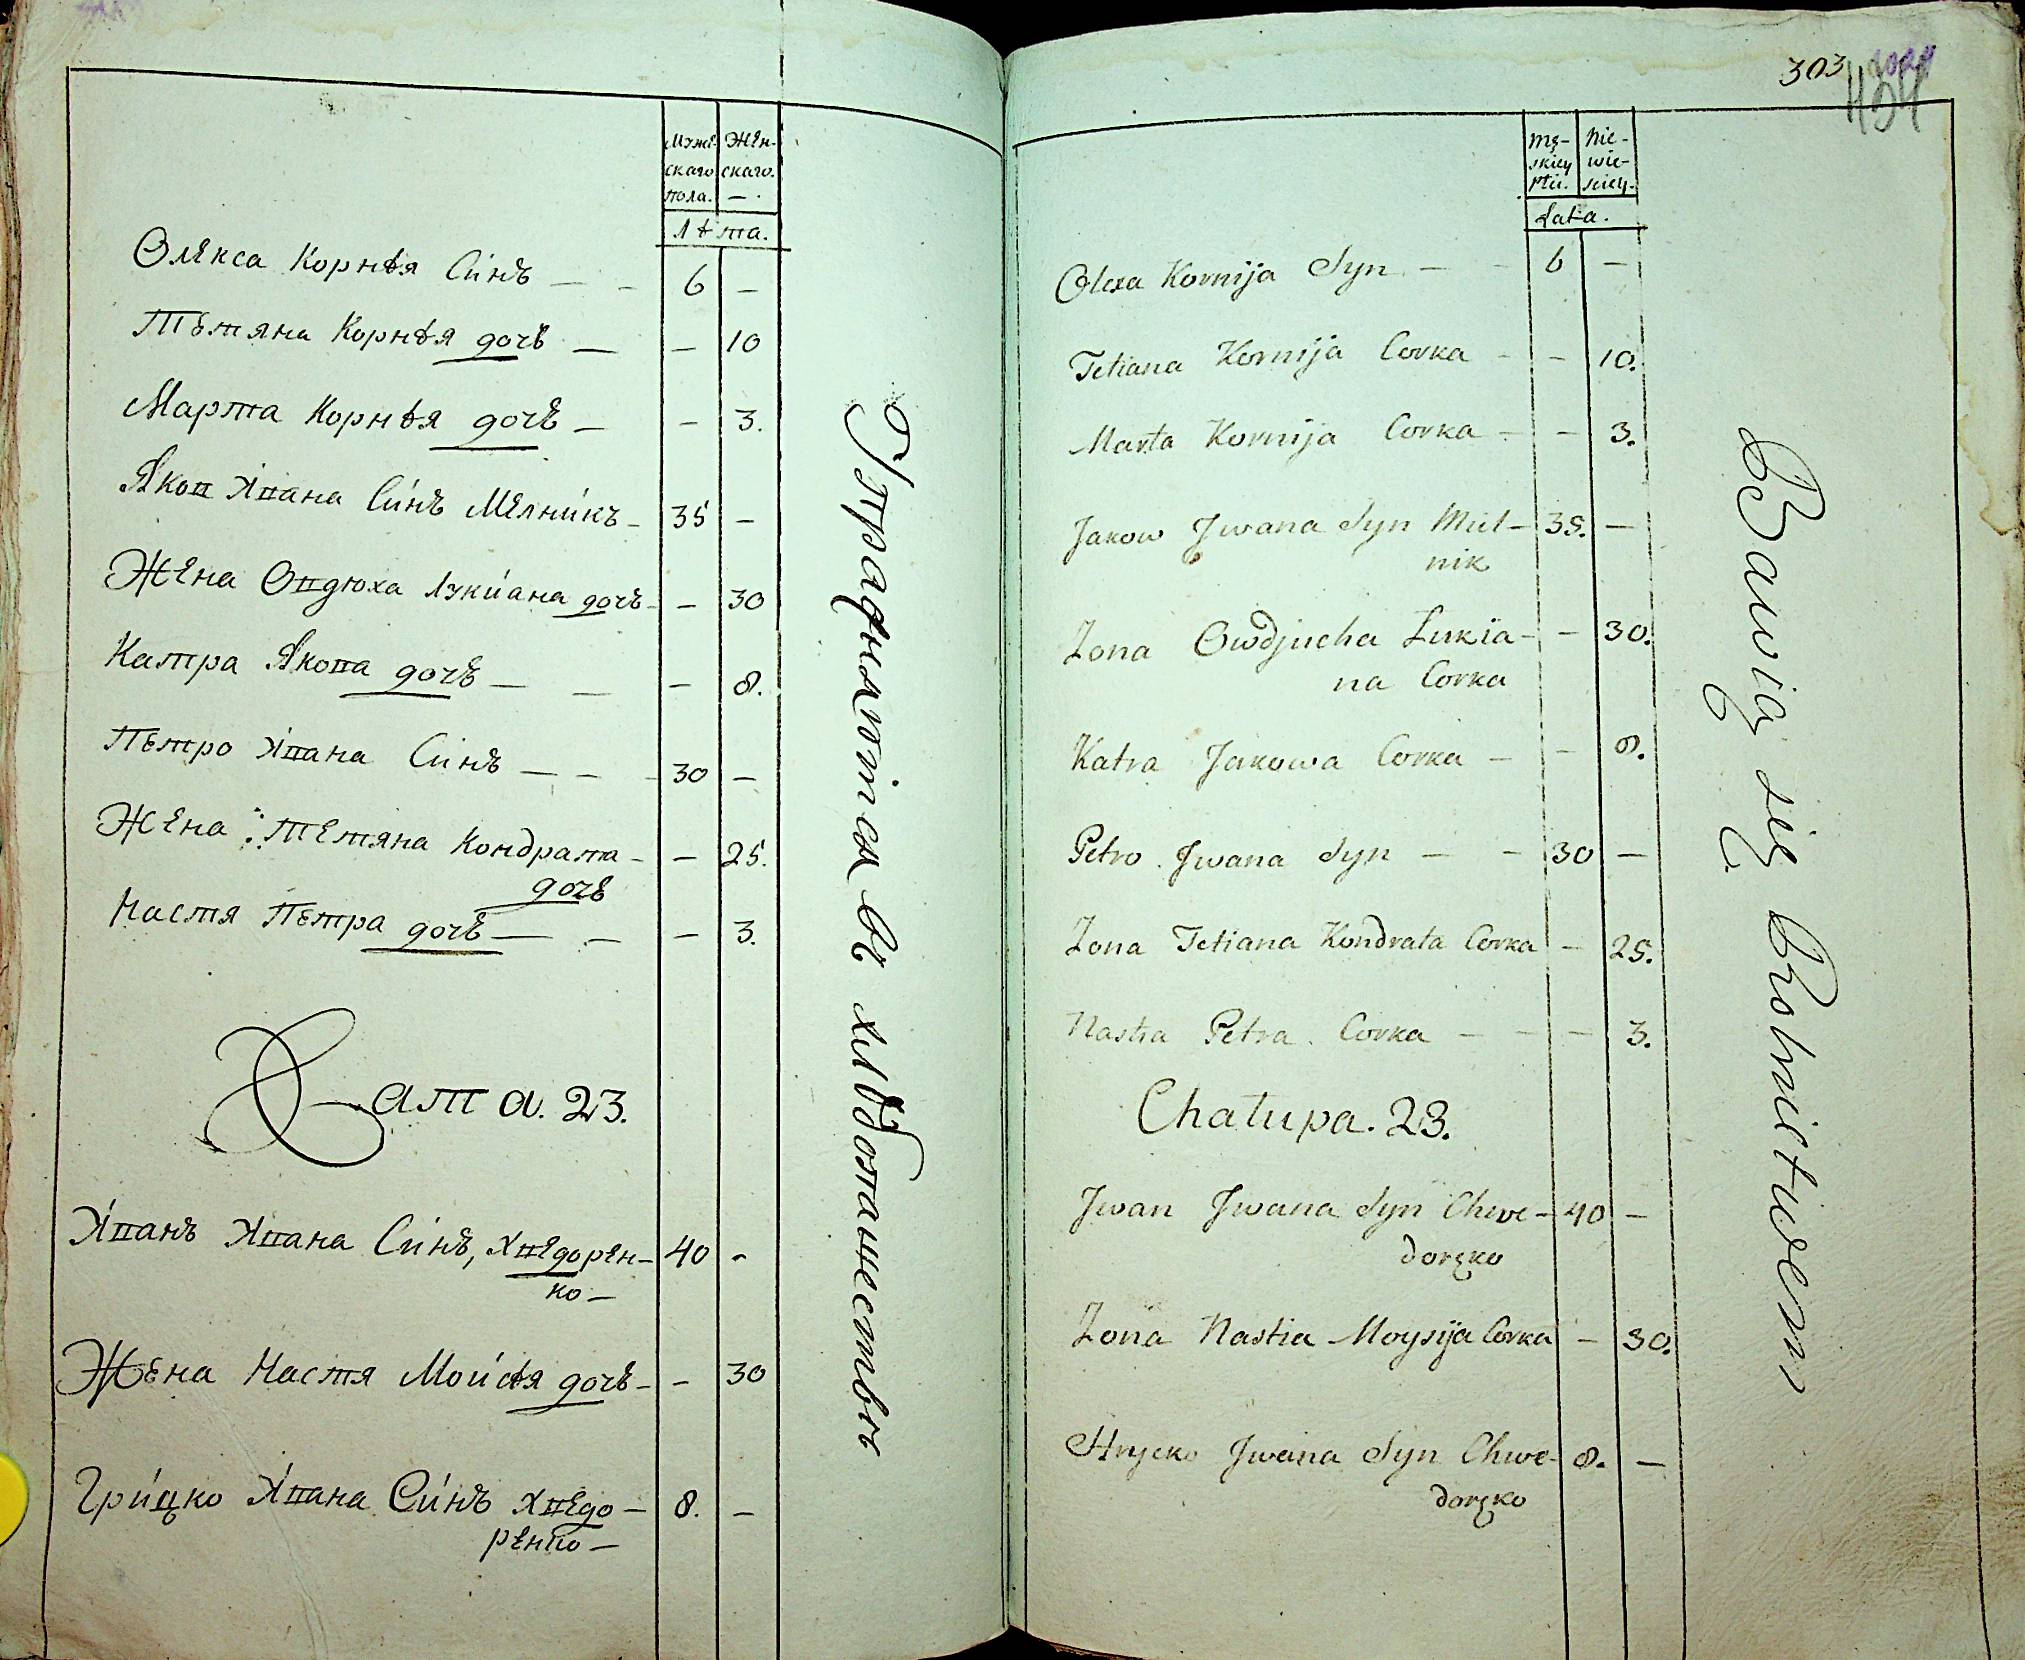 Муже- Жен-
скаго скаго.
пола. — .
Лѣта.
Олекса Корнѣя Си́нъ — - 6 —
Тѣтяна Корнѣя дочъ — — 10
Марта Корнѣя дочъ — - 3.
Яков И́вана Си́нъ Мелни́къ - 35 —
Жена Овдюха Луки́ана дочъ - — 30
Катра Якова дочъ — — - 8.
Пѣтро И́вана Си́нъ — - - 30 —
Жена Тетяна Кондрата - — 25.
дочъ
Настя Пѣтра дочъ — - — 3.
Хата. 23.
И́ванъ И́вана Си́нъ, Хведорен- 40 -
ко —
Жена Настя Мои́сѣя дочъ - — 30
Гри́цко И́вана Си́нъ Хведо — 8. —
ренко —
Упражняются въ хлѣбопашествѣ
303
Mę- Nie-
skiey wie-
Płci. sciey.
Lata.
Olexa Kornija Syn — - 6 —
Tetiana Kornija Corka - — 10.
Marta Kornija Corka - — 3.
Jakow Jwana Syn Miel- 35. —
nik
Zona Owdjucha Lukia- — 30.
na Corka
Katra Jakowa Corka — - 8.
Petro Jwana Syn — - 30 —
Zona Tetiana Kondrata Corka — 25.
Nastia Petra Corka — - — 3.
Chałupa. 23.
Jwan Jwana Syn Chwe- 40 —
doręko
Zona Nastia Moysija Corka — 30.
Hrycko Jwana Syn Chwe- 8. —
doręko
Bawią się Rolnictwem